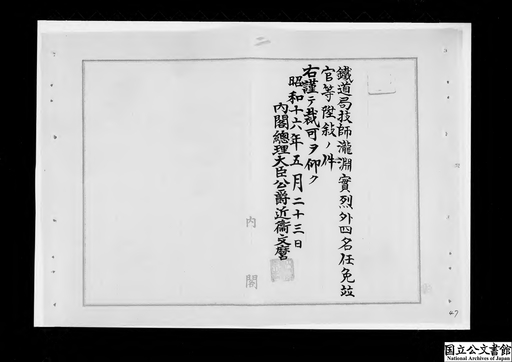 二
鐵道局技師瀧淵實烈外四名任免竝
官等陞敍ノ件
右謹テ裁可ヲ仰ク
昭和十六年五月二十三日
內閣總理大臣公爵近衞文麿
內閣
47
国立公文書館
National Archives of Japan